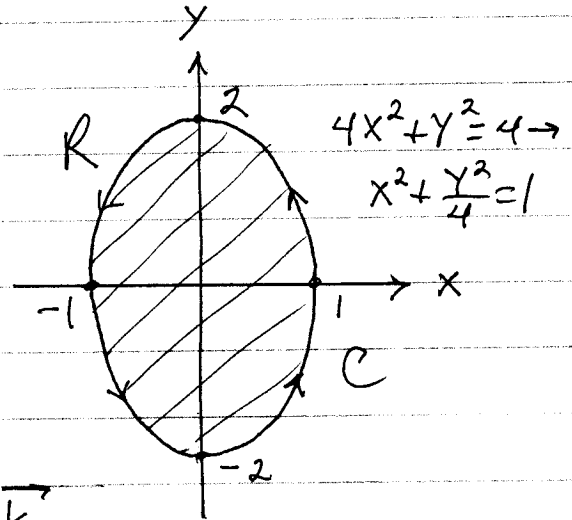 Y
2
R
4X²+Y²=4→
X²+Y²/4=1
X
-1
1
C
-2
k